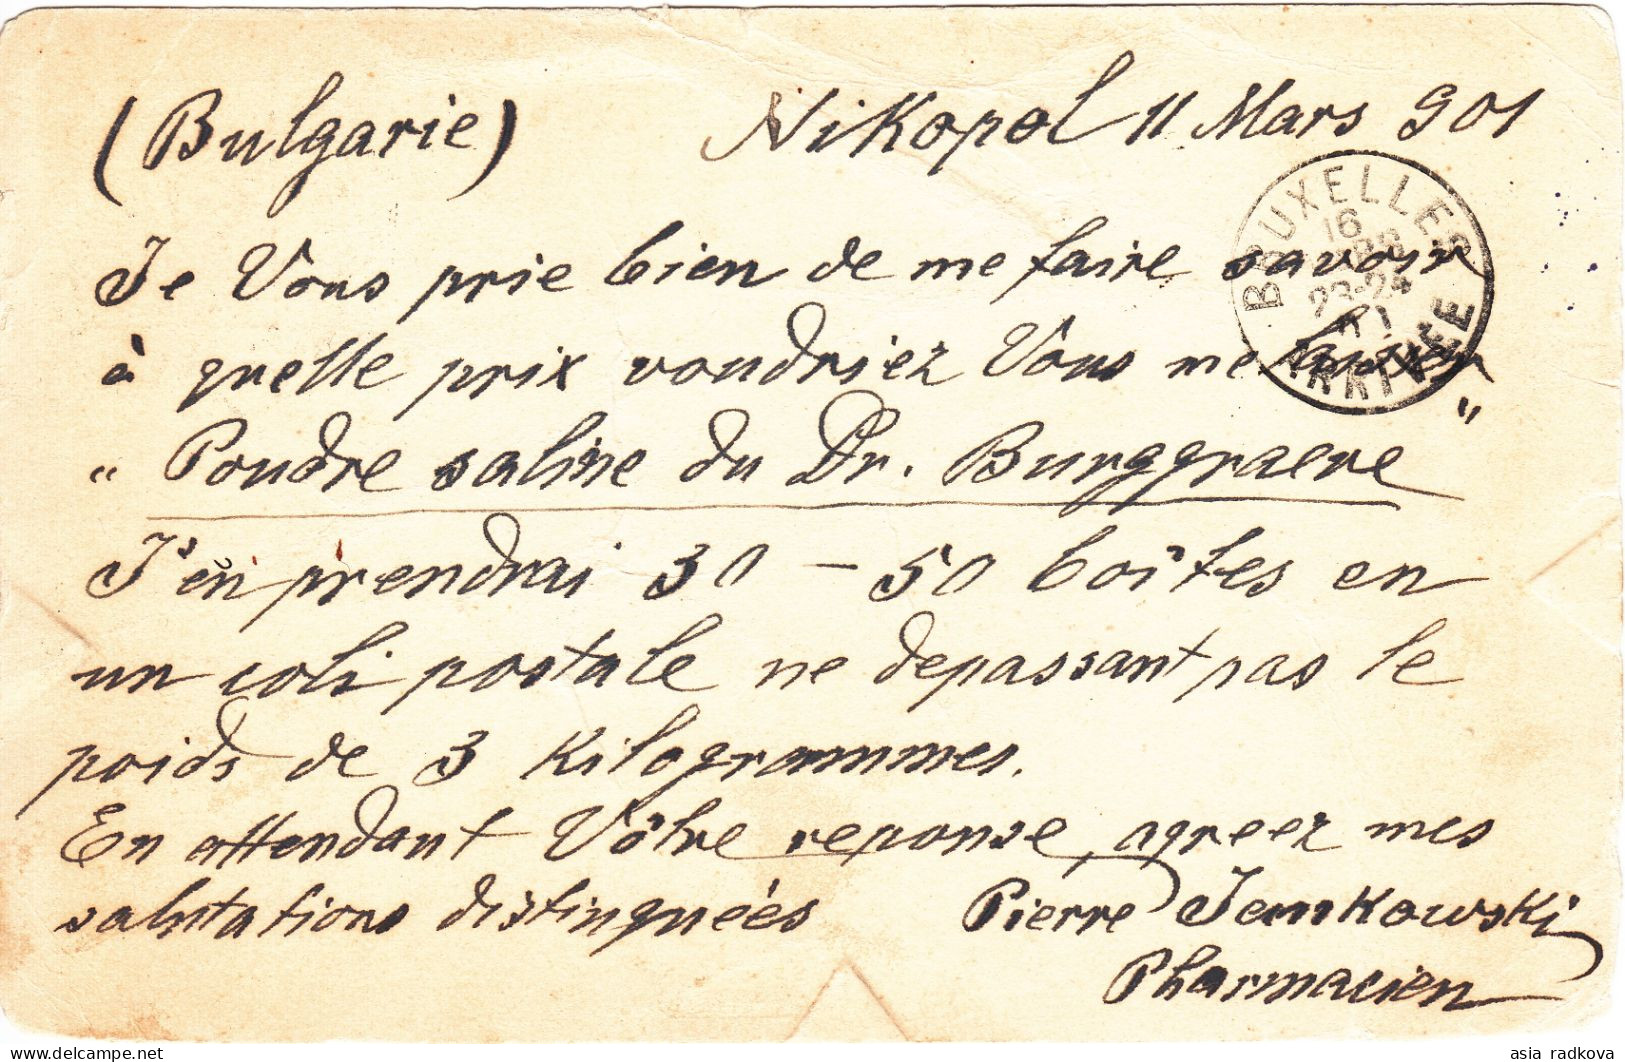 (Bulgarie) Nikopol 11 Mars 901
Je Vous prie bien de me faire savoir
à quelle prix voudriez Vous me laisser
"Poudre saline du Dr. Burggraeve"
J'en prendrai 30 – 50 boîtes en
un coli postale ne depassant pas le
poids de 3 Kilogrammes.
En attendant Vôtre reponse, agreez mes
salutations distinguées Pierre
Pharmacien
BRUXELLES
16
23-24
ARRIVEE
asia radkova
delcampe.net